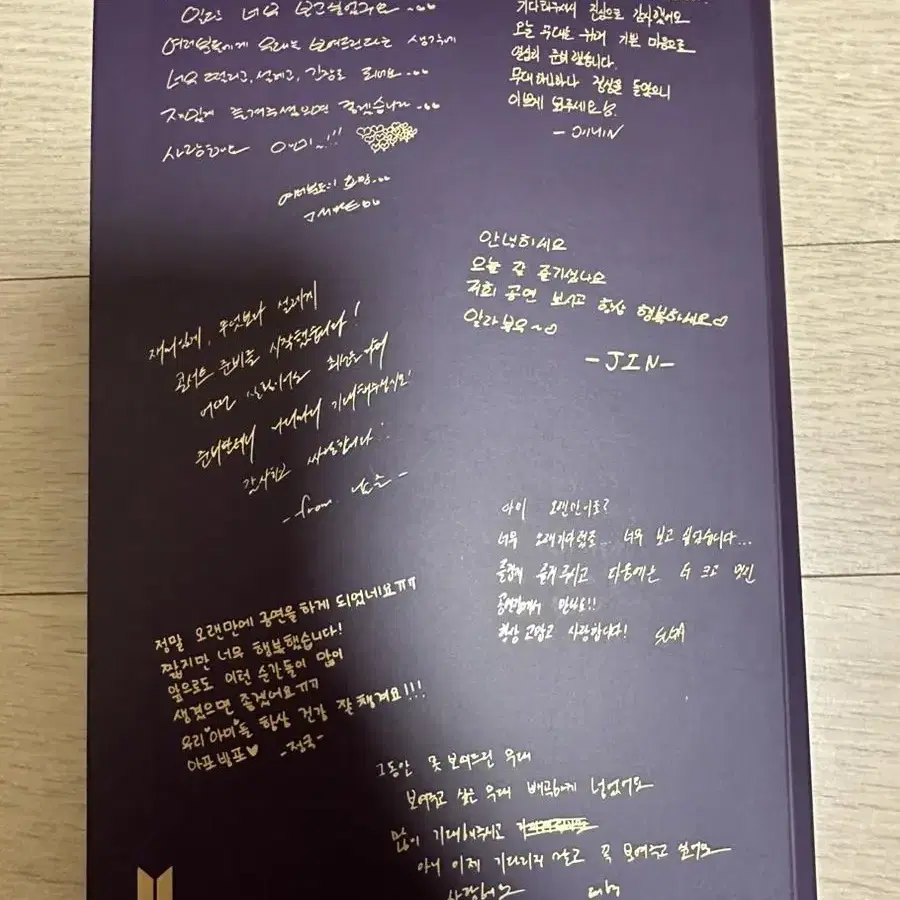 일단 너무 보고싶었구요..
여러분들에게 오래는 보여드린다는 생각에
너무 떨리고, 설레고, 긴장도 되네요..
재밌게 즐겨주셨으면 좋겠습니다..
사랑해요 아미~!!!
여러분의 희망..
기다려주셔서 진심으로 감사했어요
오늘 무대를 위해 기쁜 마음으로
열심히 준비했습니다.
무대 하나하나 정성을 들였으니
이쁘게 봐주세요
-JIMIN
안녕하세요
오늘 잘 즐기셨나요
저희 공연 보시고 항상 행복하세요♡
알라뷰욱~♡
-JIN-
재미있게, 무엇보다 설레게
콘서트 준비를 시작했습니다!
어떤 최선을 다해
준비한테니 기대해주십시오!
감사하고 사랑합니다
-from 남준-
아이 오랜만이죠?
너무 오래기다렸죠... 너무 보고 싶었습니다...
즐겁게 즐겨주시고 다음에는 더 크고 멋진
공연장에서 만나요!!
항상 고맙고 사랑합니다! 슈가
정말 오랜만에 공연을 하게 되었네요ㅠㅠ
짧지만 너무 행복했습니다!
앞으로도 이런 순간들이 많이
생겼으면 좋겠어요ㅠㅠ
우리♥아미♥들 항상 건강 잘 챙겨요!!!
아포방포♥ -정국-
그동안 못 보여드린 무대
보여주고 싶은 무대 빼곡하게 넣었어요
많이 기대해주시고
아니 이제 기다리지 말고 꼭 보여주고 싶어요
사랑해요 태형